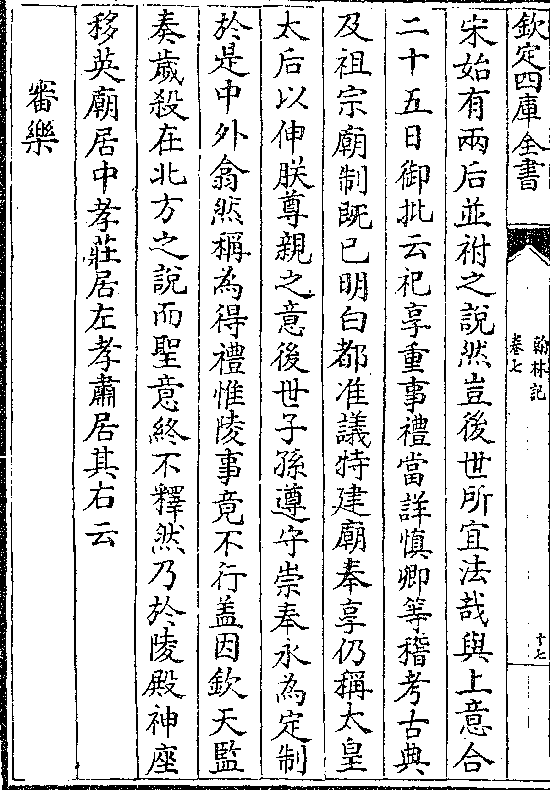 欽定四庫全書
翰林記
卷七
十七
宋始有兩后並祔之說然豈後世所宜法哉與上意合
二十五日御批云祀享重事禮當詳慎卿等稽考古典
及祖宗廟制既已明白都准議特建廟奉享仍稱太皇
太后以伸朕尊親之意後世子孫遵守崇奉永為定制
於是中外翕然稱為得禮惟陵事竟不行蓋因欽天監
奏歲殺在北方之說而聖意終不釋然乃於陵殿神座
移英廟居中孝莊居左孝肅居其右云
審樂